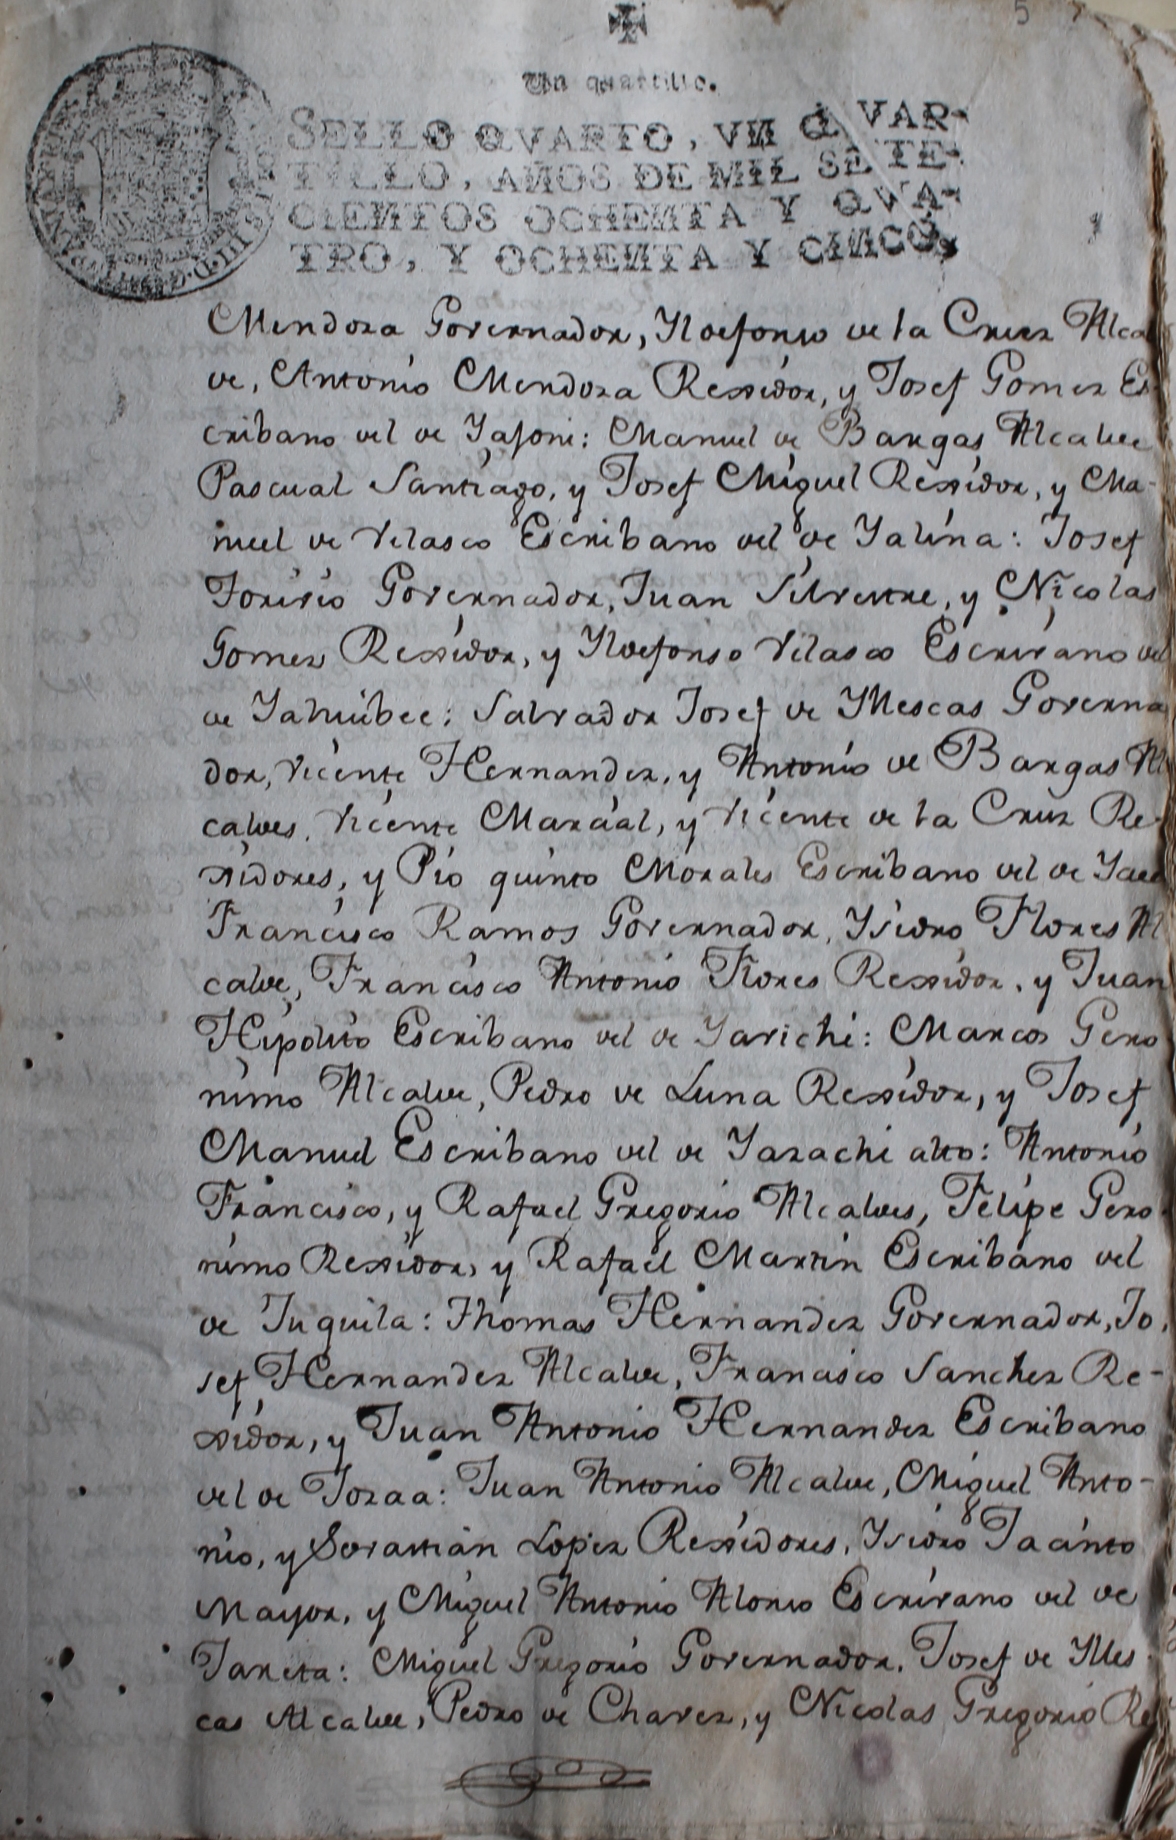 5
Un quartillo.
SELLO QVARTO, VN QVAR-
TILLO, AÑOS DE MIL SETE-
CIENTOS OCHENTA Y QVA-
TRO, Y OCHENTA Y CINCO.
Mendoza Governador, Yldefonso de la Cruz Alca
de, Antonio Mendoza Rexidor, y Josef Gomez Es
cribano del de Yasoni: Manuel de Bargas Alcalde
Pascual Santiago, y Josef Miguel Rexidor, y Ma-
nuel de Velasco Escribano del de Yalina: Josef
Toribio Governador, Juan Silvestre, y Nicolas
Gomez Rexidor, y Yldefonso Velasco Escrivano del
de Yahuibee: Salvador Josef de Yllescas Governa
dor, Vicente Hernandez, y Antonio de Bargas Al
caldes, Vicente Marcial, y Vicente de la Cruz Re-
xidores, y Pio quinto Morales Escribano del de Yaee
Francisco Ramos Governador, Ysidro Flores Al
calde, Francisco Antonio Flores Rexidor, y Juan
Hipolito Escribano del de Yavichi: Marcos Gero
nimo Alcalde, Pedro de Luna Rexidor, y Josef
Manuel Escribano del de Yazachi alto: Antonio
Francisco, y Rafael Gregorio Alcaldes, Felipe Gero
nimo Rexidor, y Rafael Martin Escribano del
de Juquila: Thomas Hernandez Governador, Jo
sef Hernandez Alcalde, Francisco Sanchez Re-
xidor, y Juan Antonio Hernandez Escribano
del de Jozaa: Juan Antonio Alcalde, Miguel Anto-
nio, y Sevastian Lopez Rexidores, Ysidro Jacinto
Mayor, y Miguel Antonio Alonso Escrivano del de
Taneta: Miguel Gregorio Governador, Josef de Ylles
cas Alcalde, Pedro de Chavez, y Nicolas Gregorio Re